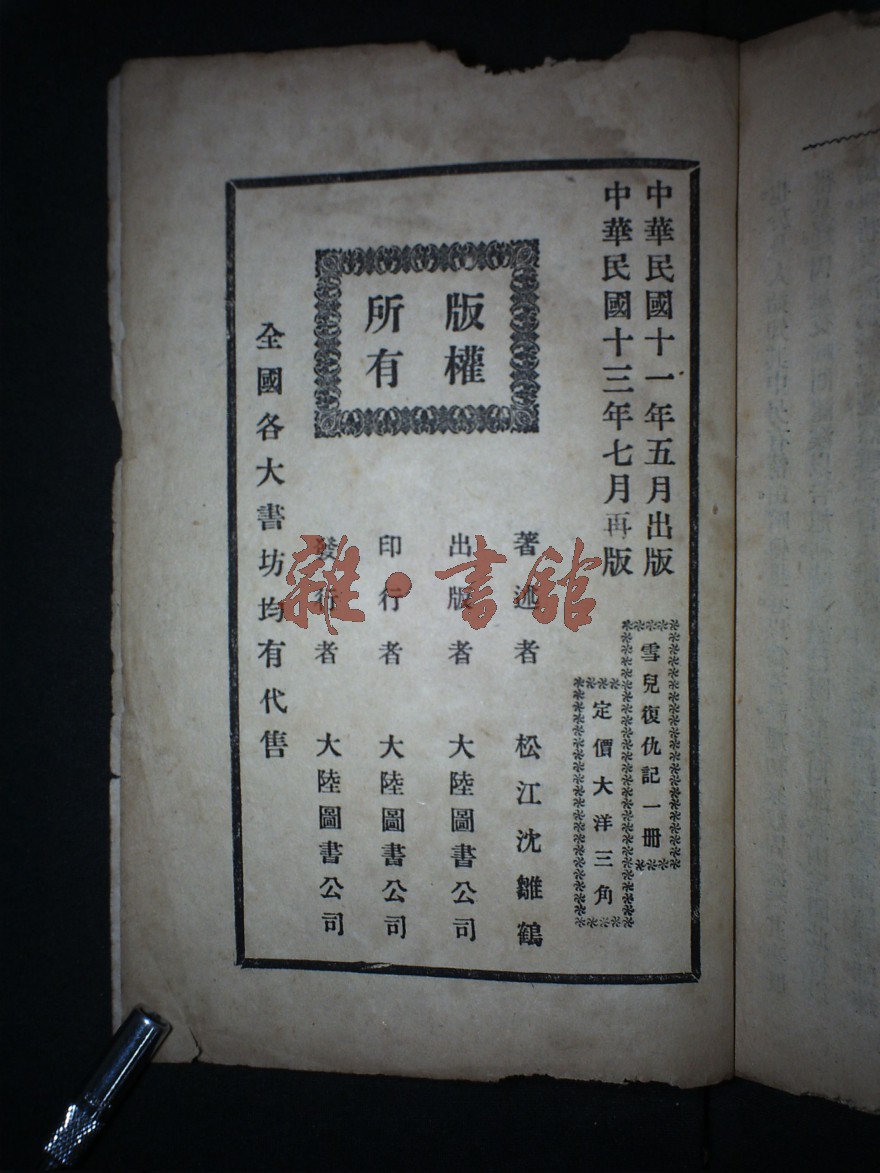 中華民國十一年五月出版
中華民國十三年七月再版
雪兒復仇記一册
定價大洋三角
版權
所有
著述者 松江沈雛鶴
出版者 大陸圖書公司
印行者 大陸圖書公司
發行者 大陸圖書公司
全國各大書坊均有代售
雜·書館